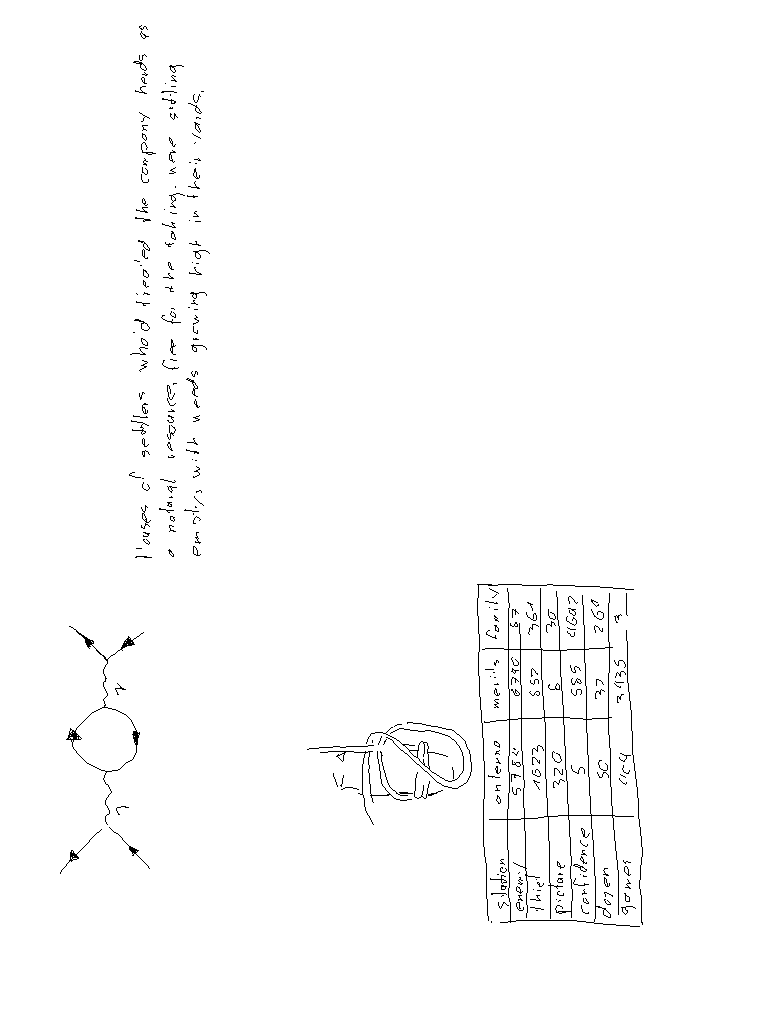 Houses of settlers who'd treated the company herds as
a natural resource, free for the taking, were sitting
empty, with weeds growing high in their yards.
γ γ
Station antenna merits family
enemy 5784 6790 57
thief 1623 857 361
picture 320 6 30
confidence 5 585
dozen 50 37 260
games 464 3435 3